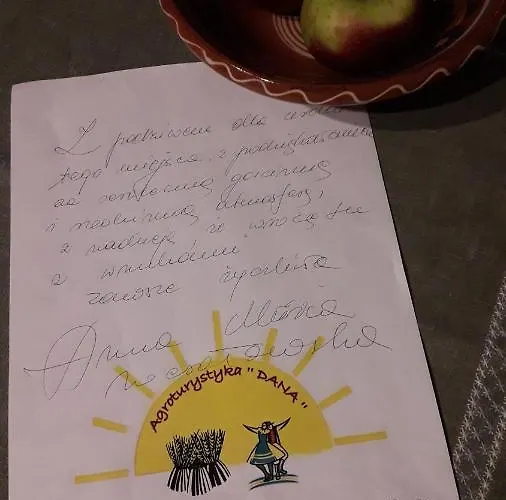 Z podziwem dla urody
tego miejsca, z podziękowaniem
za serdeczną gościnę
i rodzinną atmosferę,
z nadzieją że wrócę tu
z wnukami
zawsze życzliwa
Anna Maria
Agroturystyka "DANA"